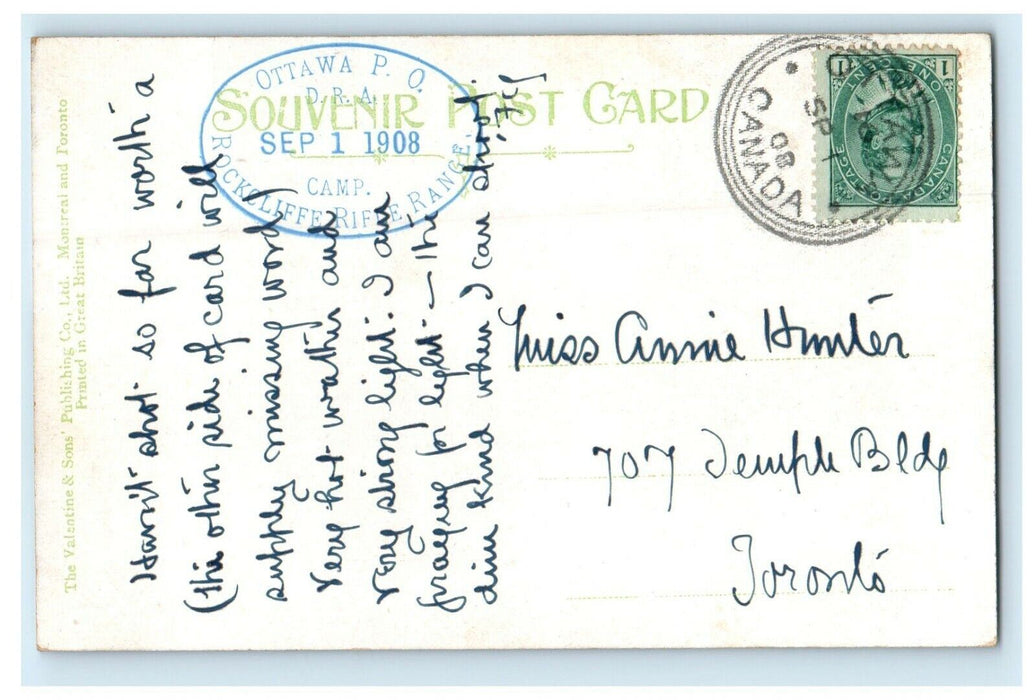 SOUVENIR POST CARD
OTTAWA P. O.
D.R.A.
SEP 1 1908
CAMP.
ROCKCLIFFE RIFLE RANGE.
CANADA
SP 1
08
1 ONE CENT 1
CANADA POSTAGE
The Valentine & Sons' Publishing Co., Ltd. Montreal and Toronto
Printed in Great Britain
Havn't shot so far worth a
(the other side of card will
supply missing word)
Very hot weather and
very strong light. I am
praying for light — the
dim kind when I can shoot!
Miss Annie Hunter
707 Temple Bldg
Toronto